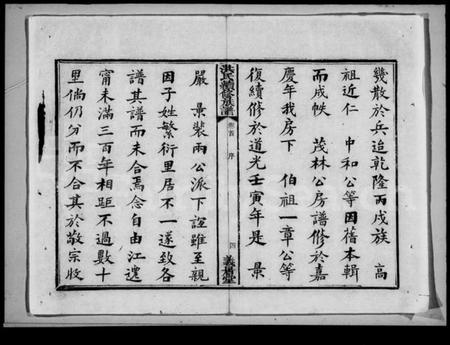 幾散於兵迨乾隆丙戌族 高
祖近仁 中和公等因舊本輯
而成帙 茂林公房譜修於嘉
慶年我房下 伯祖一章公等
復續修於道光壬寅年是 景
洪氏續修族譜
卷首 序
四
嚴 景裝兩公派下誼雖至親
因子姓繁衍里居不一遂致各
譜其譜而未合焉念自由江遷
甯未滿三百年相距不過數十
里倘仍分而不合其於敬宗收